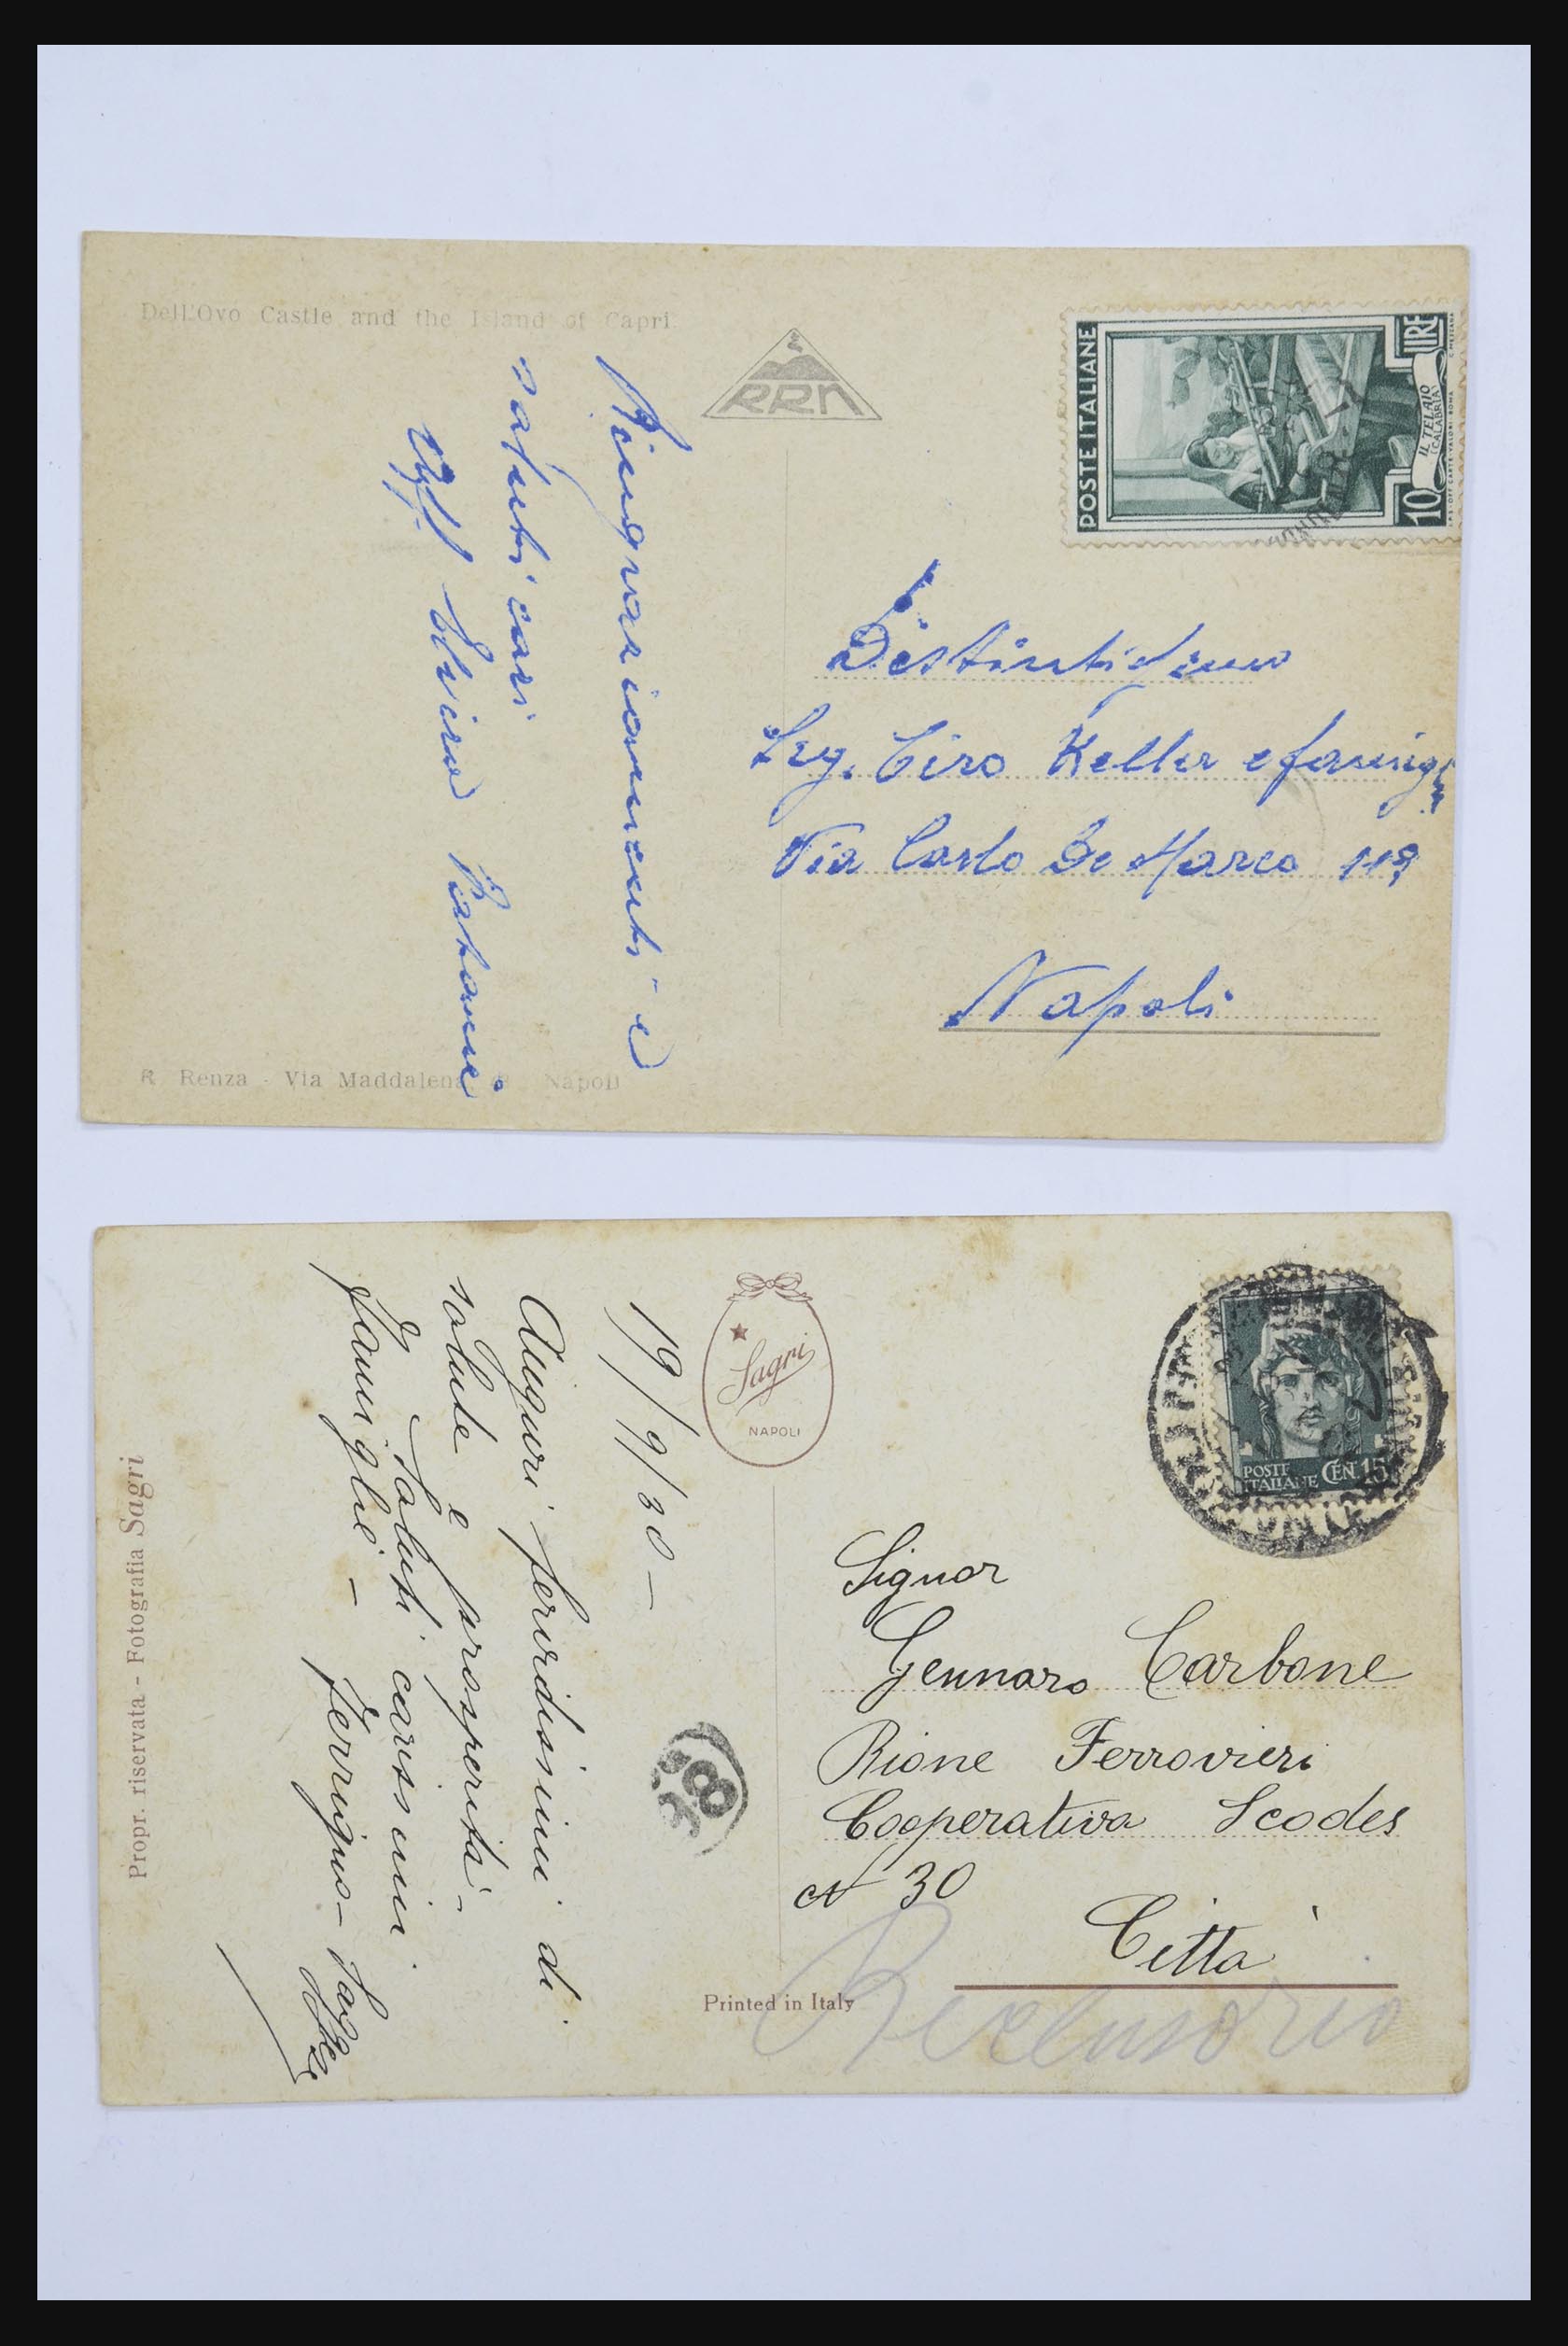 Dell'Ovo Castle and the Island of Capri
RRN
POSTE ITALIANE
LIRE
10
IL TELAIO
(CALABRIA)
Ringraziamenti e
saluti cari
Distintissimo
Sig. Ciro Keller e famiglia
Via Carlo De Marco 119
Napoli
R. Renza - Via Maddalena Napoli
Sagri
NAPOLI
POSTE
ITALIANE CEN 15
19/9/30 -
Auguri fervidissimi di
salute e prosperità -
Saluti carissimi
famiglie -
98
Signor
Gennaro Carbone
Rione Ferrovieri
Cooperativa Scodes
N 30
Città
Reclusorio
Printed in Italy
Propr. riservata - Fotografia Sagri